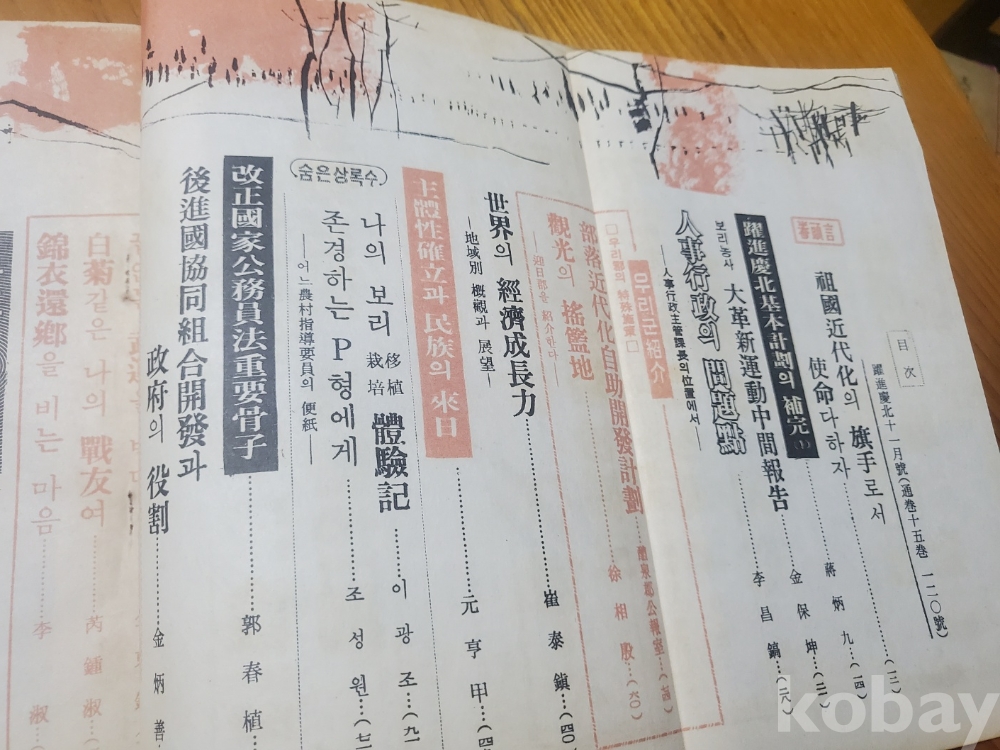 目次
躍進慶北十一月號(通巻十五巻 一二〇號)
卷頭言
祖國近代化의 旗手로서
使命다하자……蔣炳九…(一三)
躍進慶北基本計劃의 補完(上)……金保坤…(一四)
보리농사 大革新運動中間報告……李昌鎬…(二八)
人事行政의 問題點
—人事行政主管課長의位置에서—
우리고장紹介
□우리郡의 特殊施策□
部落近代化自助開發計劃……醴泉郡公報室
觀光의 搖籃地……徐相殷…(六〇)
—迎日郡을 紹介한다—
世界의 經濟成長力……崔泰鎭…(四〇
—地域別 槪觀과 展望—
主體性確立과 民族의 來日……元亨甲…(四
나의 보리 移植 栽培 體驗記……이광조…(九一
숨은상록수
존경하는 P형에게……조성원…(七
—어느農村指導要員의 便紙—
改正國家公務員法重要骨子……郭春植
後進國協同組合開發과
政府의 役割……金炳善
白菊같은 나의 戰友여……芮鍾淑
錦衣還鄕을 비는 마음……李淑
kobay